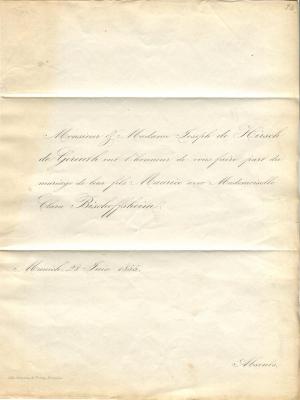 Monsieur & Madame Joseph de Hirsch
de Gereuth ont l'honneur de vous faire part du
mariage de leur fils Maurice avec Mademoiselle
Clara Bischoffsheim.
Munich, 28 Juin 1855.
Absents.